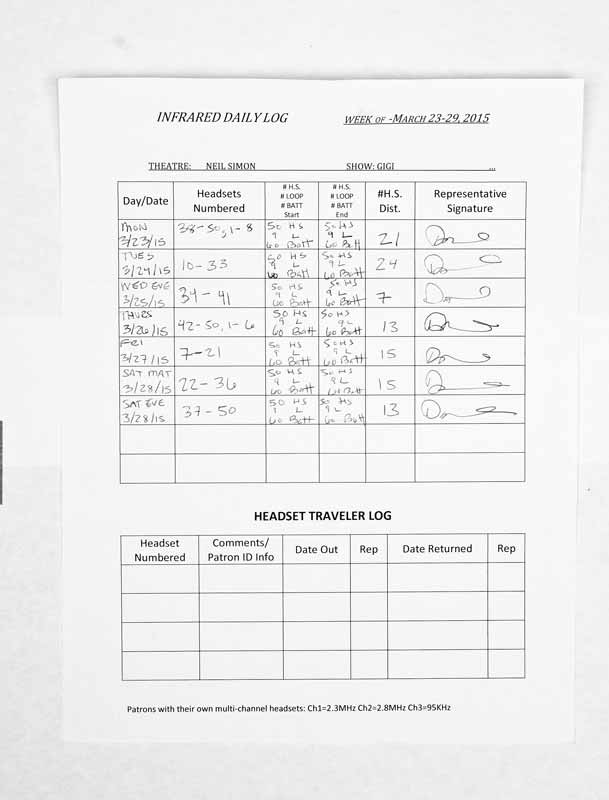 INFRARED DAILY LOG WEEK OF -MARCH 23-29, 2015
THEATRE: NEIL SIMON SHOW: GIGI ...
Day/Date
Headsets
Numbered
# H.S.
# LOOP
# BATT
Start
# H.S.
# LOOP
# BATT
End
#H.S.
Dist.
Representative
Signature
MON
3/23/15
38-50, 1-8
50 HS
9 L
60 Batt
50 HS
9 L
60 Batt
21
TUES
3/24/15
10-33
50 HS
9 L
60 Batt
50 HS
9 L
60 Batt
24
WED EVE
3/25/15
34-41
50 HS
9 L
60 Batt
50 HS
9 L
60 Batt
7
THURS
3/26/15
42-50, 1-6
50 HS
9 L
60 Batt
50 HS
9 L
60 Batt
13
Fri
3/27/15
7-21
50 HS
9 L
60 Batt
50 HS
9 L
60 Batt
15
SAT MAT
3/28/15
22-36
50 HS
9 L
60 Batt
50 HS
9 L
60 Batt
15
SAT EVE
3/28/15
37-50
50 HS
9 L
60 Batt
50 HS
9 L
60 Batt
13
HEADSET TRAVELER LOG
Headset
Numbered
Comments/
Patron ID Info
Date Out
Rep
Date Returned
Rep
Patrons with their own multi-channel headsets: Ch1=2.3MHz Ch2=2.8MHz Ch3=95KHz